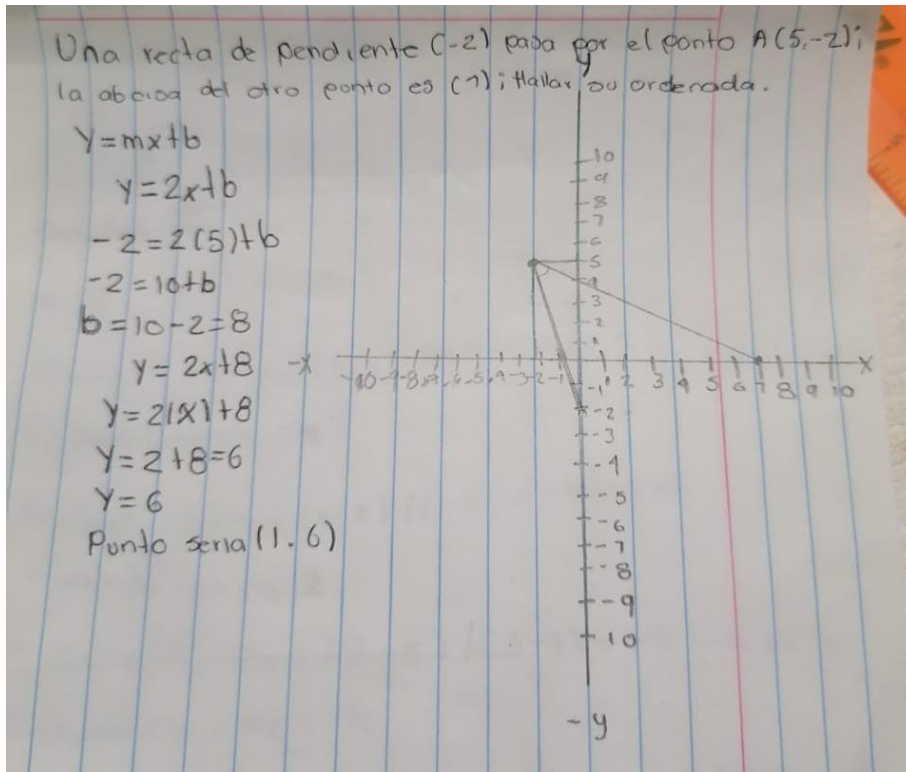 Una recta de pendiente (-2) pasa por el ponto A(5,-2);
la abcisa del otro ponto es (1); Hallar su ordenada.
y
Y=mx+b
y=2x+b
-2=2(5)+b
-2=10+b
b=10-2=8
y=2x+8
y=2(x)+8
y=2+8=6
y=6
Punto seria (1.6)
10
9
8
7
6
5
4
3
2
1
-x -10 -9 -8 -7 -6 -5 -4 -3 -2 -1 1 2 3 4 5 6 7 8 9 10 x
-1
-2
-3
-4
-5
-6
-7
-8
-9
10
-y